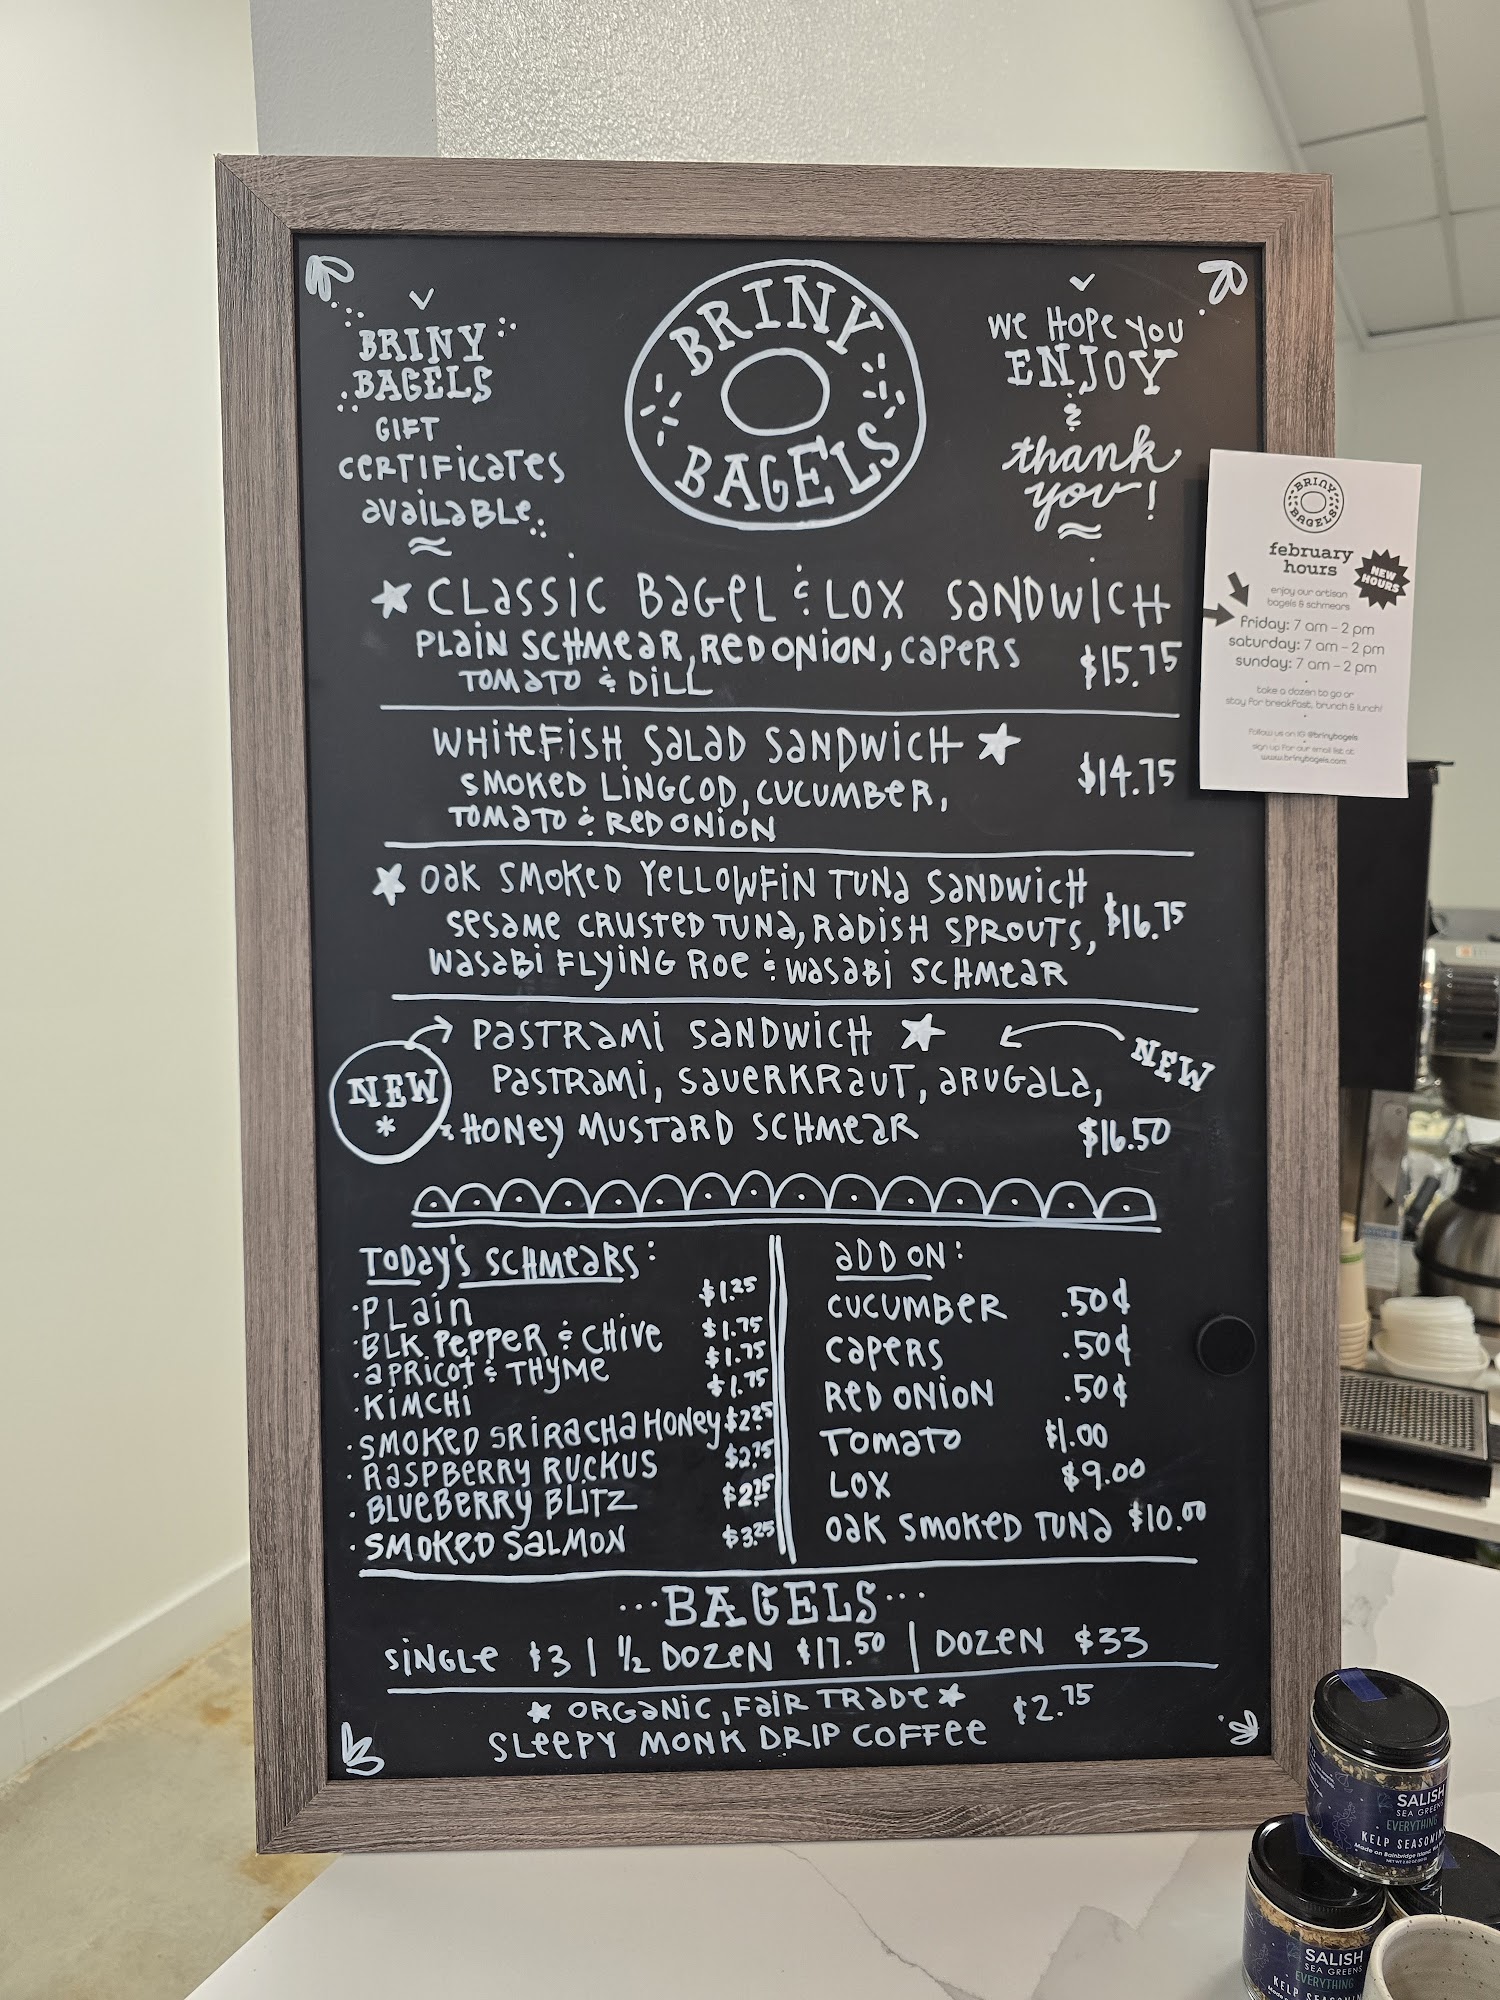 BRINY
BAGELS
GIFT
CERTIFICATES
AVAILABLE
BRINY
BAGELS
WE HOPE YOU
ENJOY
&
thank
you!
CLASSIC BAGEL & LOX SANDWICH
PLAIN SCHMEAR, RED ONION, CAPERS
TOMATO & DILL
$15.75
WHITEFISH SALAD SANDWICH
SMOKED LINGCOD, CUCUMBER,
TOMATO & RED ONION
$14.75
OAK SMOKED YELLOWFIN TUNA SANDWICH
SESAME CRUSTED TUNA, RADISH SPROUTS,
WASABI FLYING ROE & WASABI SCHMEAR
$16.75
NEW
*
PASTRAMI SANDWICH
NEW
PASTRAMI, SAUERKRAUT, ARUGALA,
& HONEY MUSTARD SCHMEAR
$16.50
TODAY'S SCHMEARS:
· PLAIN $1.25
· BLK PEPPER & CHIVE $1.75
· APRICOT & THYME $1.75
· KIMCHI $1.75
· SMOKED SRIRACHA HONEY $2.25
· RASPBERRY RUCKUS $2.75
· BLUEBERRY BLITZ
· SMOKED SALMON $3.25
ADD ON:
CUCUMBER .50¢
CAPERS .50¢
RED ONION .50¢
TOMATO $1.00
LOX $9.00
OAK SMOKED TUNA $10.00
···BAGELS···
SINGLE $3 | 1/2 DOZEN $17.50 | DOZEN $33
ORGANIC, FAIR TRADE
SLEEPY MONK DRIP COFFEE
$2.75
BRINY
BAGELS
february
hours
NEW
HOURS
enjoy our artisan
bagels & schmears
friday: 7 am – 2 pm
saturday: 7 am – 2 pm
sunday: 7 am – 2 pm
take a dozen to go or
stay for breakfast, brunch & lunch!
follow us on IG @brinybagels
sign up for our email list at
www.brinybagels.com
SALISH
SEA GREENS
EVERYTHING
KELP SEASONIN
Made on Bainbridge Island, WA
SALISH
SEA GREENS
EVERYTHING
KELP SEASONIN